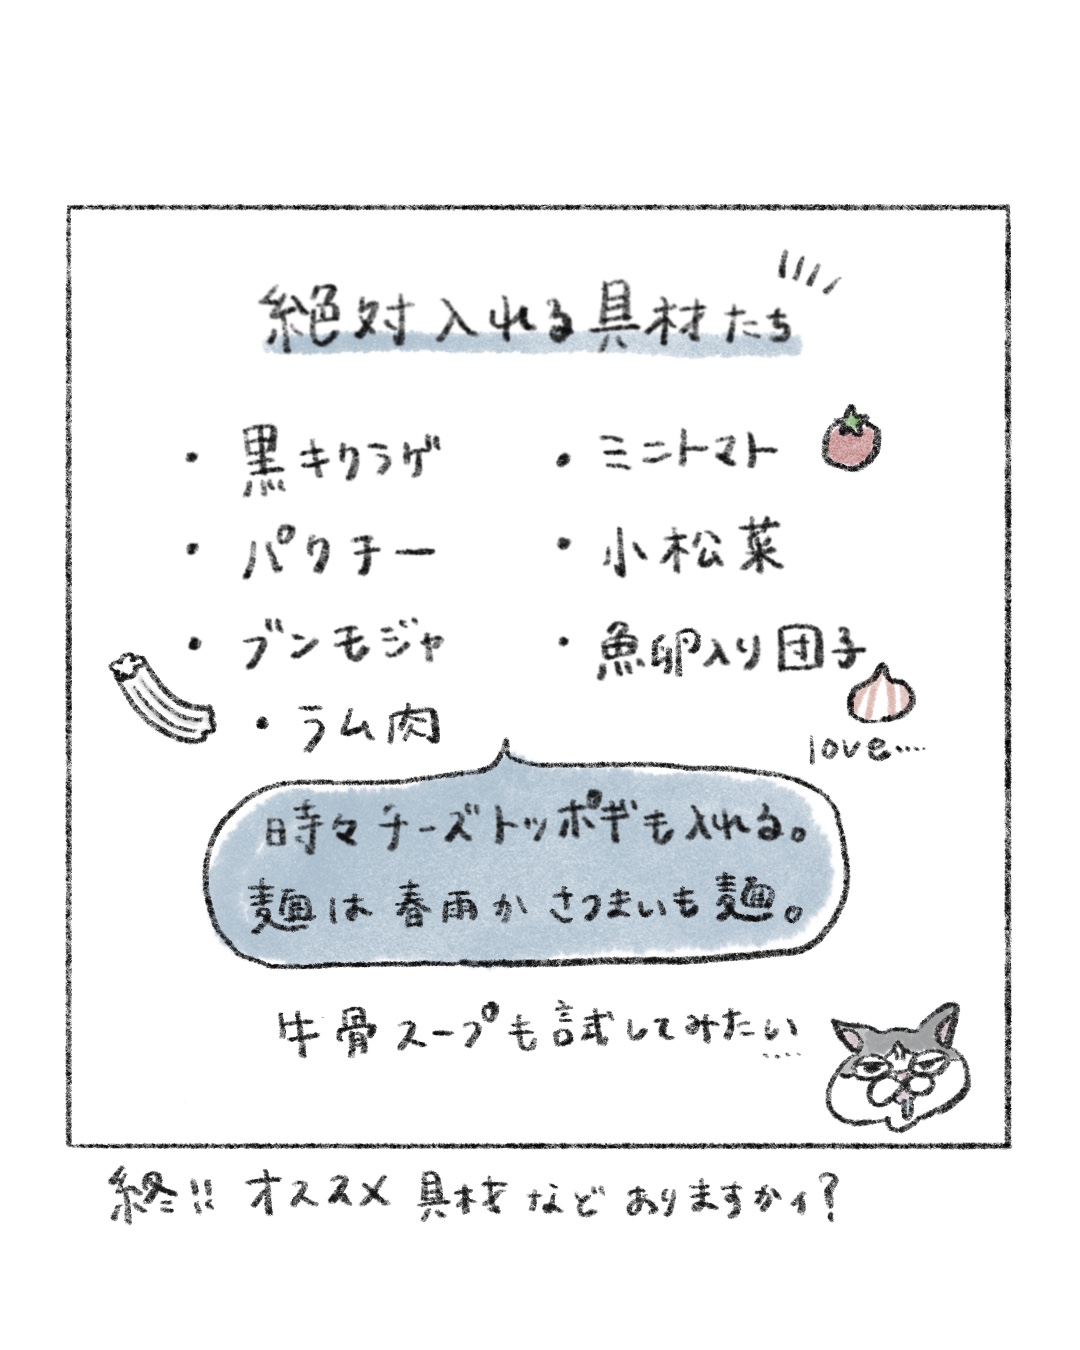 絶対入れる具材たち
・黒キクラゲ
・パクチー
・ブンモジャ
・ラム肉
・ミニトマト
・小松菜
・魚卵入り団子
love....
時々チーズトッポギも入れる。
麺は春雨かさつまいも麺。
牛骨スープも試してみたい....
終!! オススメ具材などありますかィ?